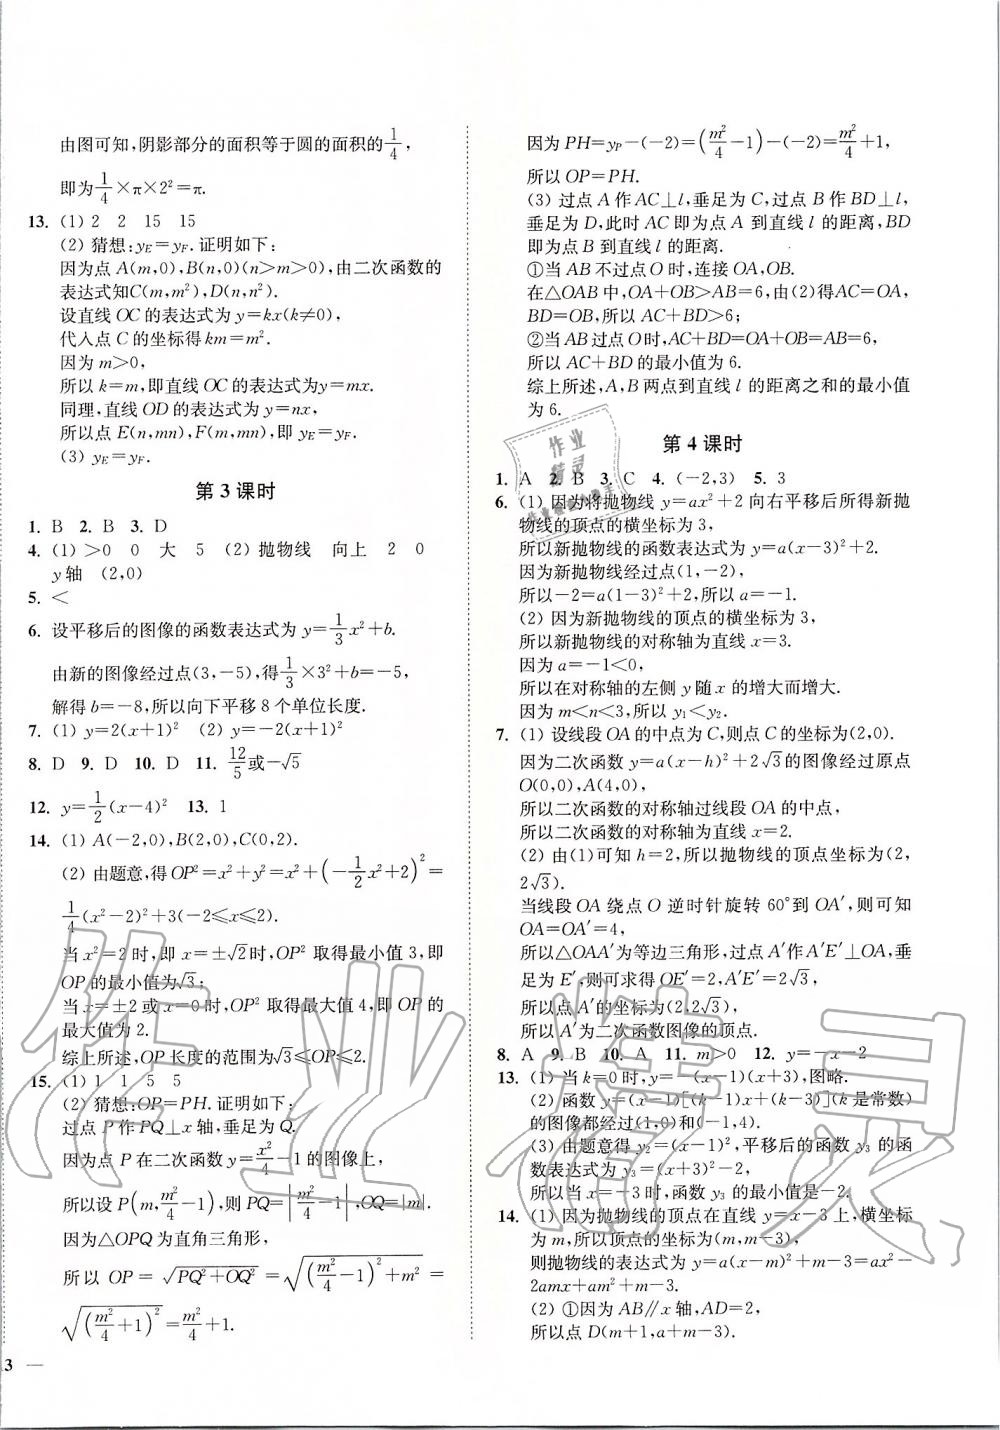 由图可知,阴影部分的面积等于圆的面积的1/4,
即为1/4×π×2²=π.
13. (1) 2 2 15 15
(2) 猜想:y_E=y_F.证明如下:
因为点 A(m,0),B(n,0)(n>m>0),由二次函数的
表达式知C(m,m²),D(n,n²).
设直线 OC 的表达式为 y=kx(k≠0),
代入点 C 的坐标得 km=m².
因为 m>0,
所以 k=m,即直线 OC 的表达式为y=mx.
同理,直线 OD 的表达式为 y=nx,
所以点 E(n,mn),F(m,mn),即 y_E=y_F.
(3) y_E=y_F.
第 3 课时
1. B 2. B 3. D
4. (1) >0 0 大 5 (2) 抛物线 向上 2 0
y 轴 (2,0)
5. <
6. 设平移后的图像的函数表达式为 y=1/3x²+b.
由新的图像经过点(3,-5),得1/3×3²+b=-5,
解得 b=-8,所以向下平移 8 个单位长度.
7. (1) y=2(x+1)² (2) y=-2(x+1)²
8. D 9. D 10. D 11. 12/5或-√5
12. y=1/2(x-4)² 13. 1
14. (1) A(-2,0),B(2,0),C(0,2).
(2) 由题意,得 OP²=x²+y²=x²+(-1/2x²+2)²=
1/4(x²-2)²+3(-2≤x≤2).
当 x²=2 时,即 x=±√2时,OP² 取得最小值 3,即
OP 的最小值为√3;
当 x=±2 或 x=0 时,OP² 取得最大值 4,即 OP 的
最大值为 2.
综上所述,OP 长度的范围为√3≤OP≤2.
15. (1) 1 1 5 5
(2) 猜想:OP=PH.证明如下:
过点 P 作 PQ⊥x 轴,垂足为 Q.
因为点 P 在二次函数 y=x²/4-1 的图像上,
所以设 P(m,m²/4-1),则 PQ=|m²/4-1|,OQ=|m|.
因为△OPQ 为直角三角形,
所以 OP=√(PQ²+OQ²)=√((m²/4-1)²+m²)=
√((m²/4+1)²)=m²/4+1.
3 —
因为 PH=y_P-(-2)=(m²/4-1)-(-2)=m²/4+1,
所以 OP=PH.
(3) 过点 A 作 AC⊥l,垂足为 C,过点 B 作 BD⊥l,
垂足为 D,此时 AC 即为点 A 到直线 l 的距离,BD
即为点 B 到直线 l 的距离.
①当 AB 不过点 O 时,连接 OA,OB.
在△OAB 中,OA+OB>AB=6,由(2)得AC=OA,
BD=OB,所以 AC+BD>6;
②当 AB 过点 O 时,AC+BD=OA+OB=AB=6,
所以 AC+BD 的最小值为 6.
综上所述,A,B 两点到直线 l 的距离之和的最小值
为 6.
第 4 课时
1. A 2. B 3. C 4. (-2,3) 5. 3
6. (1) 因为将抛物线 y=ax²+2 向右平移后所得新抛
物线的顶点的横坐标为 3,
所以新抛物线的函数表达式为 y=a(x-3)²+2.
因为新抛物线经过点(1,-2),
所以-2=a(1-3)²+2,所以 a=-1.
(2) 因为新抛物线的顶点的横坐标为 3,
所以新抛物线的对称轴为直线 x=3.
因为 a=-1<0,
所以在对称轴的左侧 y 随 x 的增大而增大.
因为 m<n<3,所以 y₁<y₂.
7. (1) 设线段 OA 的中点为 C,则点 C 的坐标为(2,0).
因为二次函数 y=a(x-h)²+2√3的图像经过原点
O(0,0),A(4,0),
所以二次函数的对称轴过线段 OA 的中点,
所以二次函数的对称轴为直线 x=2.
(2) 由(1)可知 h=2,所以抛物线的顶点坐标为(2,
2√3).
当线段 OA 绕点 O 逆时针旋转 60°到 OA′,则可知
OA=OA′=4,
所以△OAA′为等边三角形,过点 A′作 A′E′⊥OA,垂
足为 E′,则可求得 OE′=2,A′E′=2√3,
所以点 A′的坐标为(2,2√3),
所以 A′为二次函数图像的顶点.
8. A 9. B 10. A 11. m>0 12. y=-x-2
13. (1) 当 k=0 时,y=-(x-1)(x+3),图略.
(2) 函数 y=(x-1)[(k-1)x+(k-3)](k 是常数)
的图像都经过(1,0)和(-1,4).
(3) 由题意得 y₂=(x-1)²,平移后的函数 y₃ 的函
数表达式为 y₃=(x+3)²-2,
所以当 x=-3 时,函数 y₃ 的最小值是-2.
14. (1) 因为抛物线的顶点在直线 y=x-3 上,横坐标
为 m,所以顶点的坐标为(m,m-3),
则抛物线的表达式为 y=a(x-m)²+m-3=ax²-
2amx+am²+m-3.
(2) ①因为 AB∥x 轴,AD=2,
所以点 D(m+1,a+m-3).
作业精灵
作业
精灵